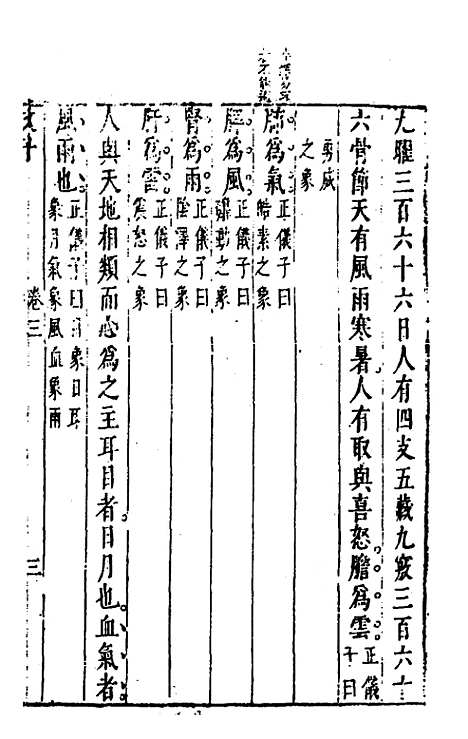 九曜三百六十六日人有四支五藏九竅三百六十
六骨節天有風雨寒暑人有取與喜怒膽爲雲正儀子曰
勇威之象
肺爲氣正儀子曰皓素之象
脾爲風正儀子曰鼓動之象
腎爲雨正儀子曰陰澤之象
肝爲雷正儀子曰震怒之象
人與天地相類而心爲之主耳目者日月也血氣者
風雨也正儀子曰目象日耳象月氣象風血象雨
文子
卷三
三